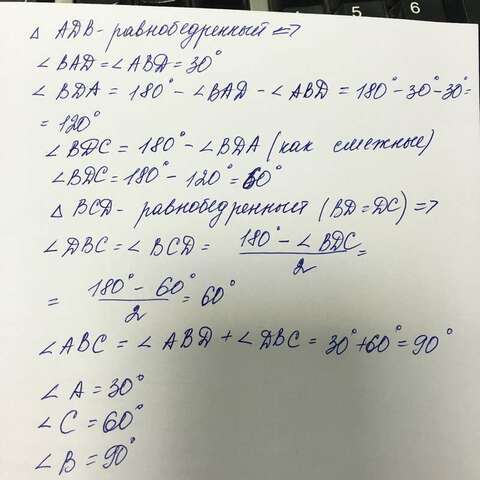 5 6
△ ADB - равнобедренный <=>
∠BAD = ∠ABD = 30°
∠BDA = 180° - ∠BAD - ∠ABD = 180° - 30° - 30° =
= 120°
∠BDC = 180° - ∠BDA (как смежные)
∠BDC = 180° - 120° = 60°
△ BCD - равнобедренный (BD = DC) =>
∠DBC = ∠BCD = (180° - ∠BDC)/2 =
= (180° - 60°)/2 = 60°
∠ABC = ∠ABD + ∠DBC = 30° + 60° = 90°
∠A = 30°
∠C = 60°
∠B = 90°